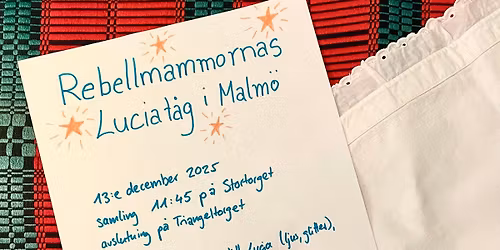 Rebellmammornas
Luciatåg i Malmö
13:e december 2025
samling 11:45 på Stortorget
avslutning på Triangeltorget
Lucia (ljus, glitter),